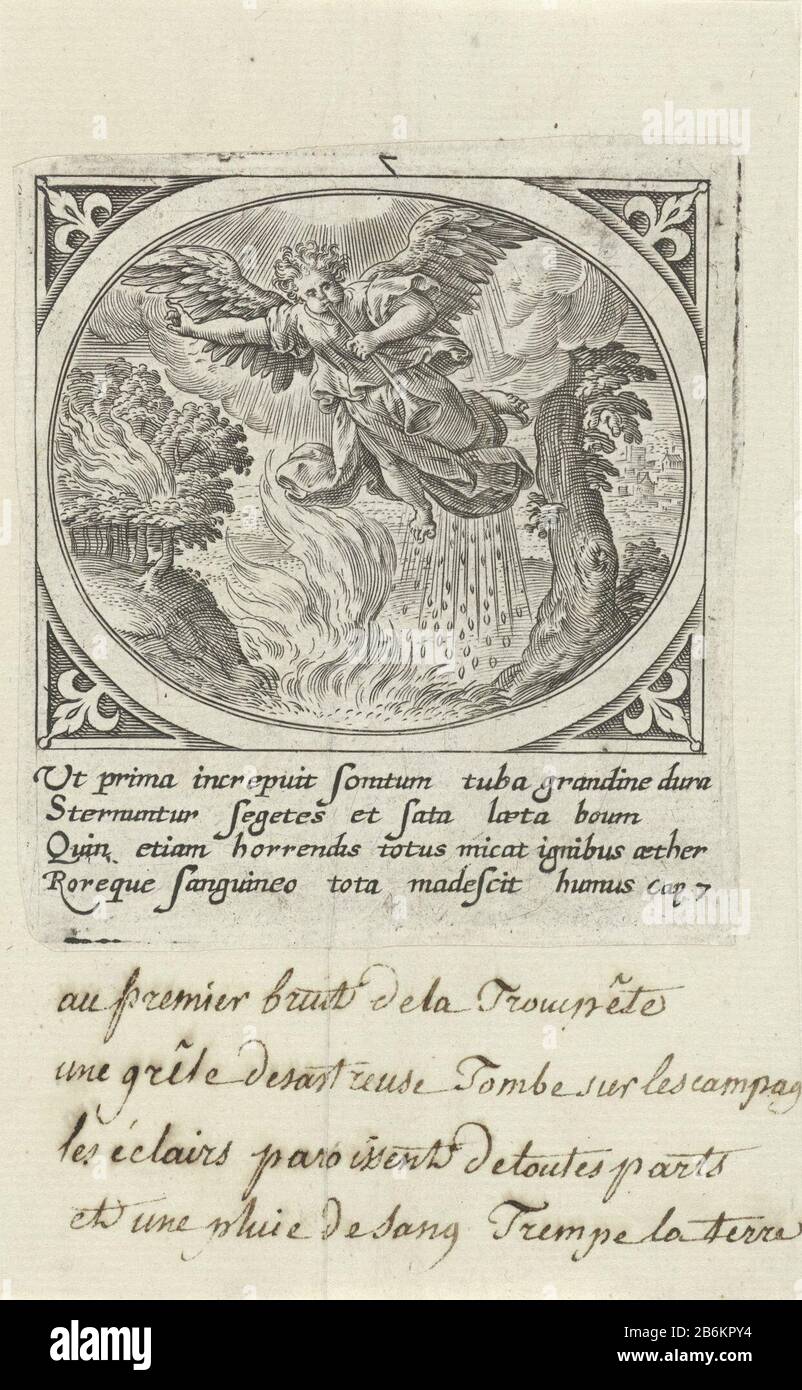 7
Ut prima increpuit sonitum tuba grandine dura
Sternuntur segetes et sata læta boum
Quin etiam horrendis totus micat ignibus æther
Roreque sanguineo tota madescit humus Cap 7
au premier bruit de la Trompête
une grêle desastreuse Tombe sur les campag
les éclairs paroissent de toutes parts
et une pluie de sang Trempe la terre
alamy
Image ID: 2B6KPY4
www.alamy.com